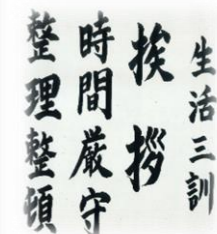 生活三訓
挨拶
時間厳守
整理整頓